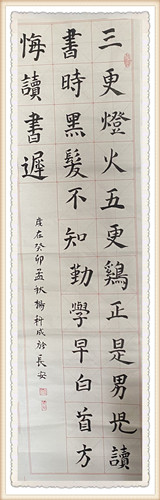 三更燈火五更鷄正是男児讀
書時黑髮不知勤學早白首方
悔讀書遲
歲在癸卯孟秋楊科成於長安